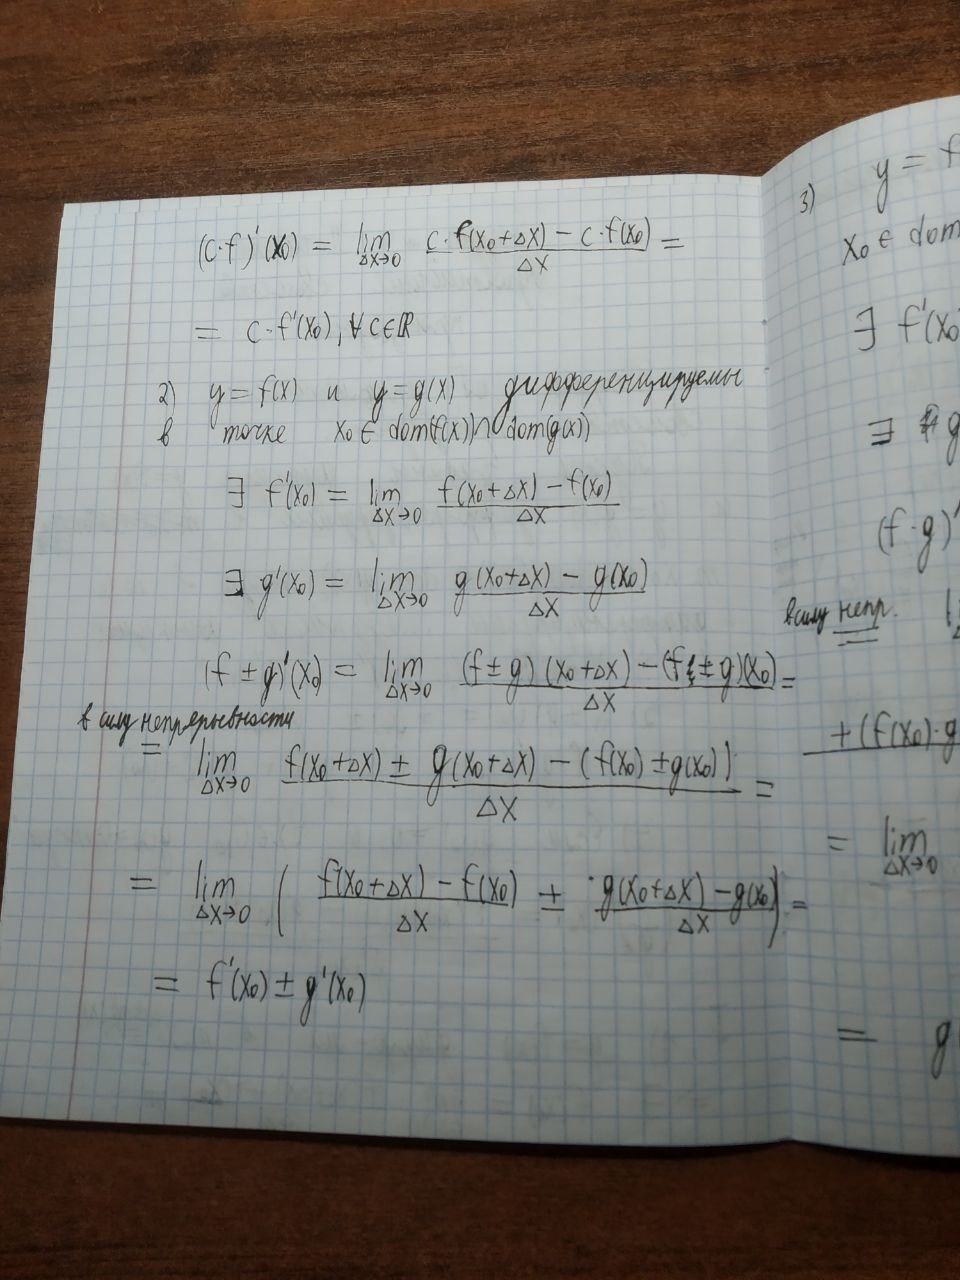 (c·f)'(x₀) = lim Δx→0 (c·f(x₀+Δx) − c·f(x₀))/Δx =
= c·f'(x₀), ∀c∈ℝ
2) y=f(x) и y=g(x) дифференцируемы
в точке x₀ ∈ dom(f(x))∩dom(g(x))
∃ f'(x₀) = lim Δx→0 (f(x₀+Δx) − f(x₀))/Δx
∃ g'(x₀) = lim Δx→0 (g(x₀+Δx) − g(x₀))/Δx
(f ± g)'(x₀) = lim Δx→0 ((f±g)(x₀+Δx) − (f±g)(x₀))/Δx =
в силу непрерывности
= lim Δx→0 (f(x₀+Δx) ± g(x₀+Δx) − (f(x₀) ± g(x₀)))/Δx =
= lim Δx→0 ((f(x₀+Δx) − f(x₀))/Δx ± (g(x₀+Δx) − g(x₀))/Δx) =
= f'(x₀) ± g'(x₀)
3) y = f
x₀ ∈ dom
∃ f'(x₀
∃ g
(f·g)'
в силу непр.
=
+(f(x₀)·g
= lim Δx→0
= g